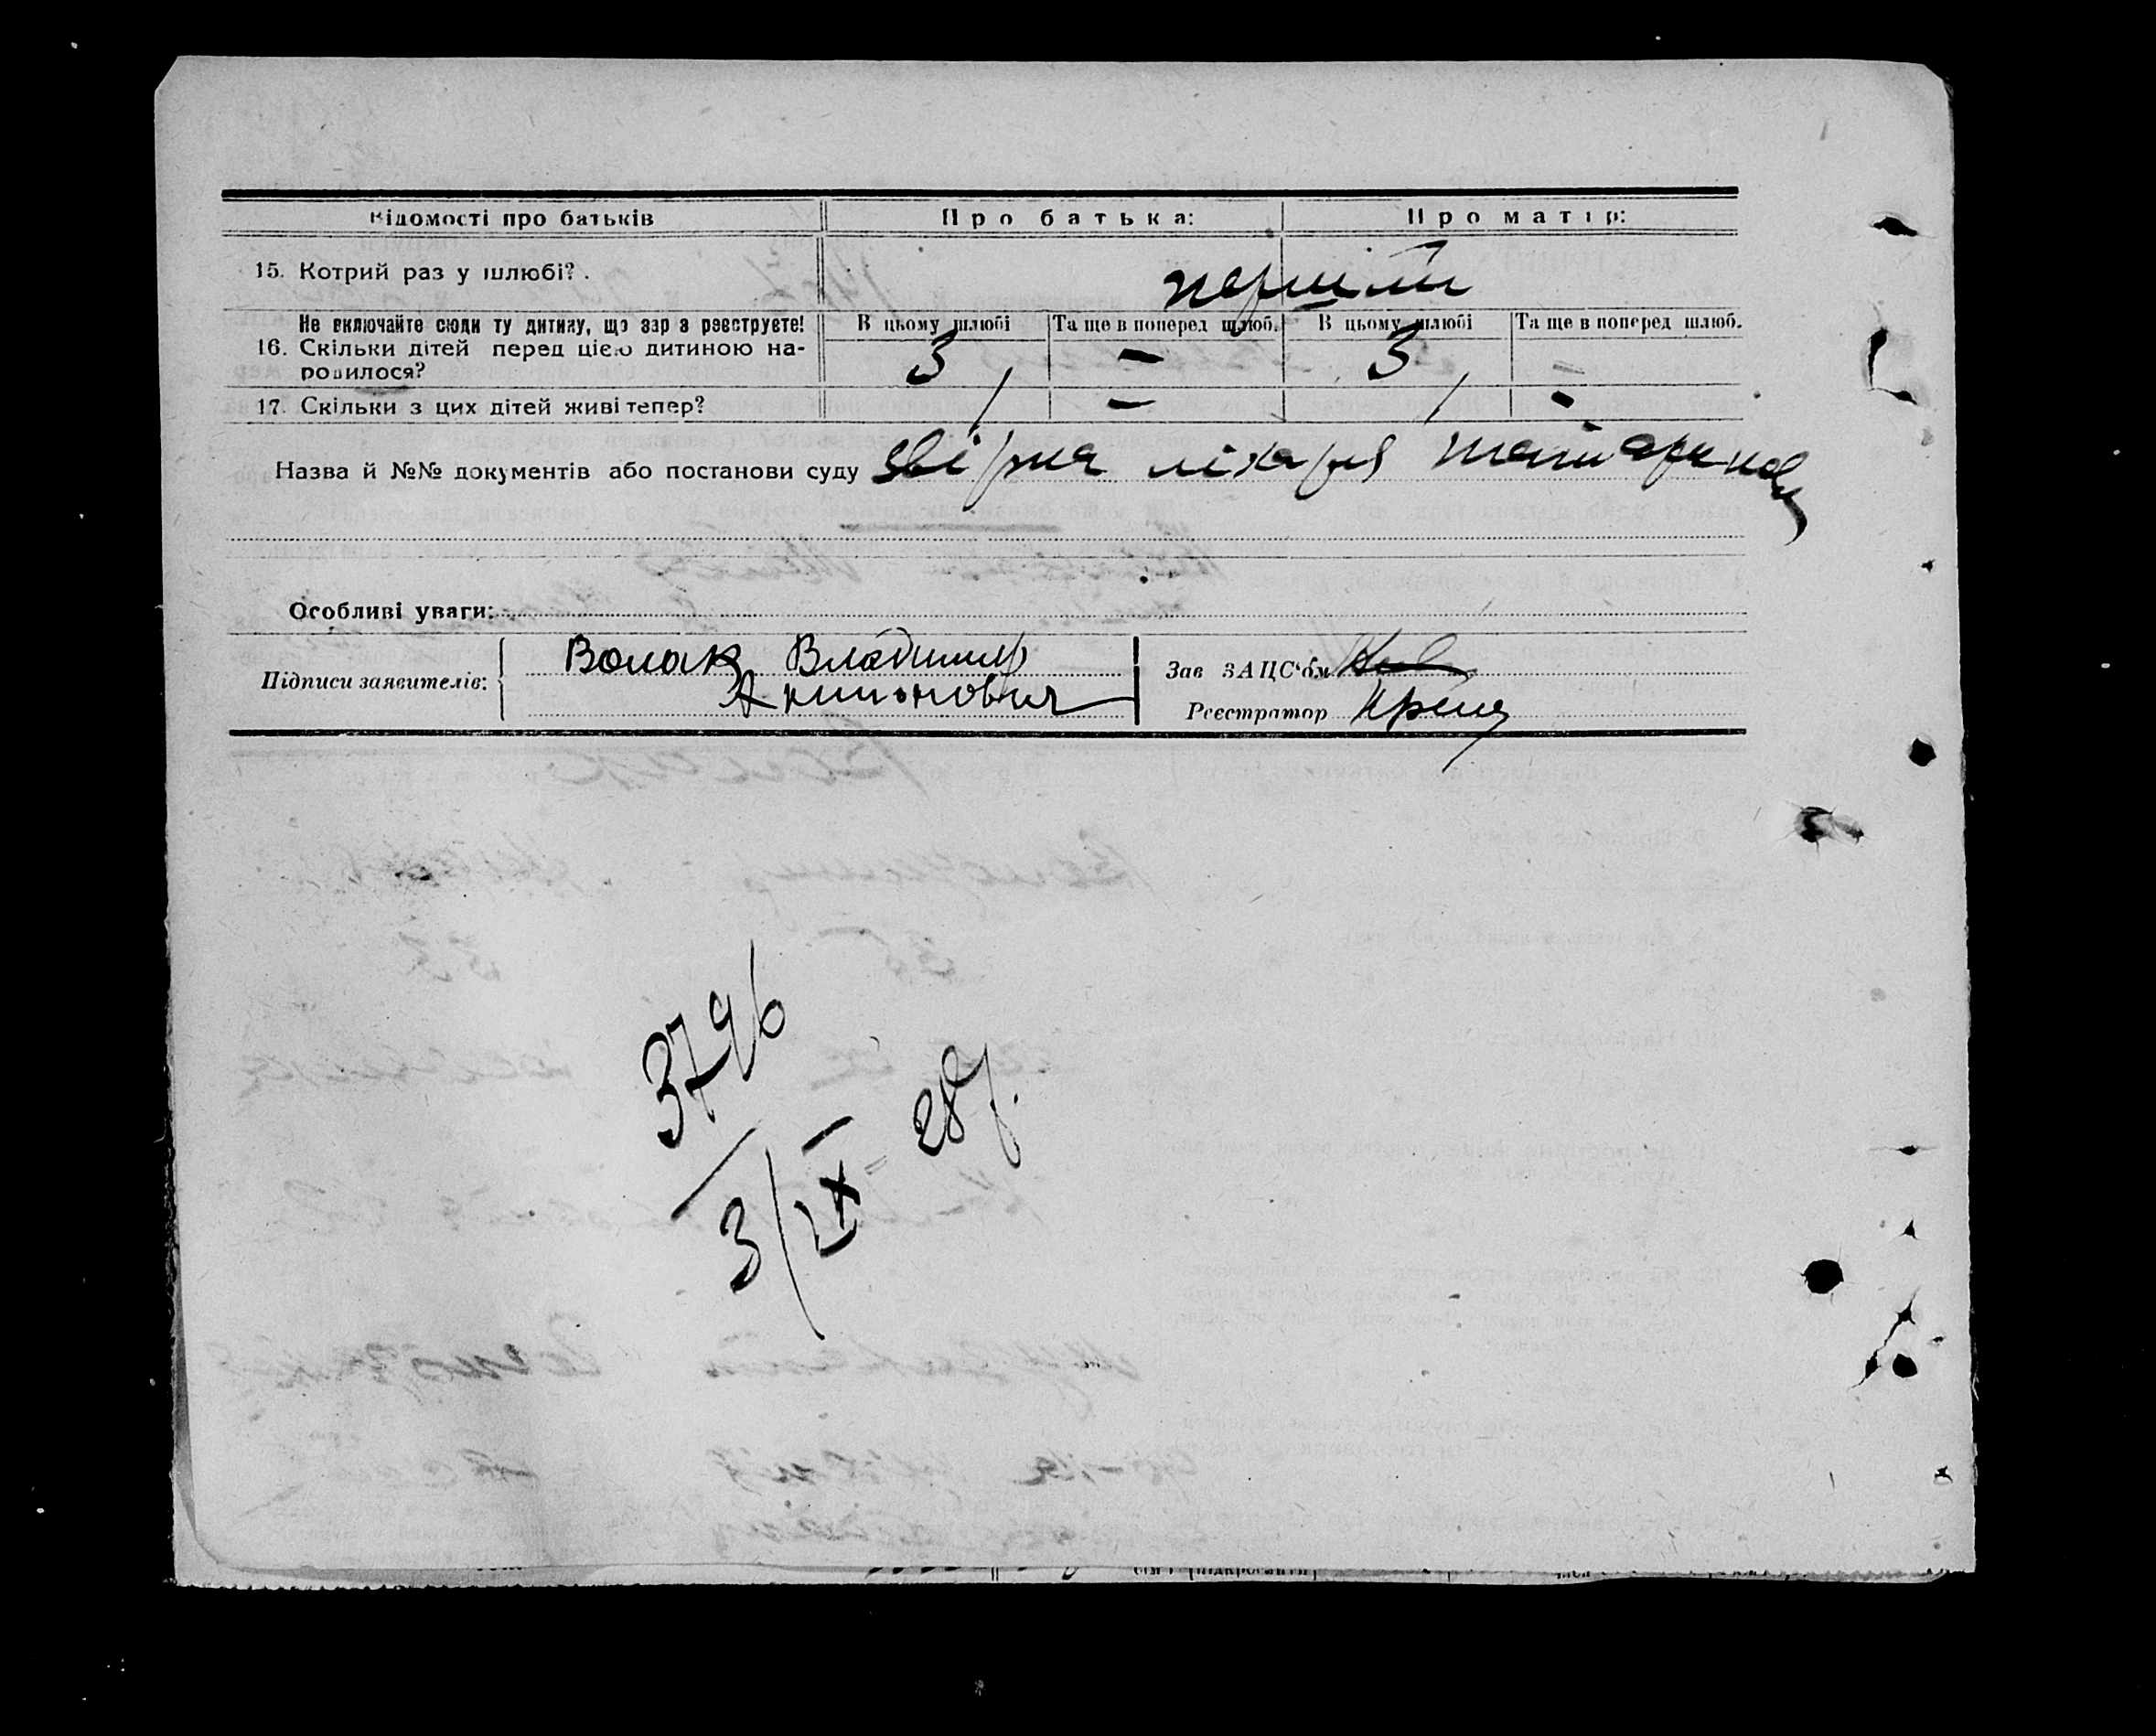 Відомості про батьків Про батька: Про матір:
15. Котрий раз у шлюбі? . перший
Не включайте сюди ту дитину, що зараз реєструєте!
16. Скільки дітей перед цією дитиною народилося?
В цьому шлюбі Та ще в поперед шлюб. В цьому шлюбі Та ще в поперед шлюб.
3 – 3 –
17. Скільки з цих дітей живі тепер? 1 – 1 -
Назва й №№ документів або постанови суду лікаря
Особливі уваги:
Підписи заявителів: Волак Владимир
Зав ЗАЦС'ом
Реєстратор
3796
3/IX 28р.